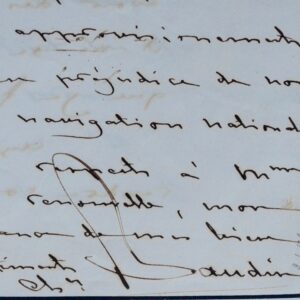 approvisionnements
préjudice de no
navigation national
remets à Mm
renouvelle, mon
de mes bien
Ch. Baudin